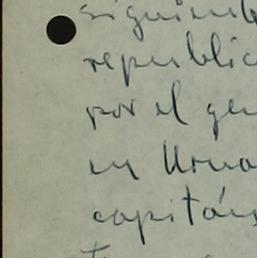 siguient
republic
por el ge
en Urua
capitán